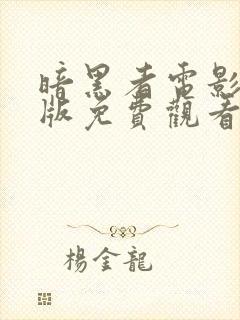 暗黑者電影
版免費觀看
楊金龍